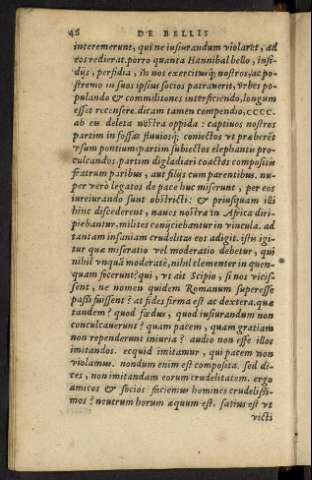 46 DE BELLIS
interemerunt, qui ne iusiurandum violarēt, ad
eos redierat. porro quanta Hannibal bello, insi-
dijs, perfidia, in nos exercitusq́; nostros, ac po-
stremo in suos ipsius socios patrauerit, vrbes po-
pulando & commilitones interficiendo, longum
esset recensere. dicam tamen compendio, CCCC.
ab eu deleta nostra oppida: captiuos nostros
partim in fossas fluuiosq́; coniectos vt præberēt
vsum pontium: partim subiectos elephantis pro-
culcandos. partim digladiari coactos compositis
fratrum paribus, aut filijs cum parentibus. nu-
per verò legatos de pace huc miserunt, per eos
iureiurando sunt obstricti: & priusquam illi
hinc discederent, naues nostræ in Africa diri-
piebantur. milites conijciebantur in vincula. ad
tantam insaniam crudelitas eos adigit. istis igi-
tur quæ miseratio vel moderatio debetur, qui
nihil vnquā moderatè, nihil clementer in quen-
quam fecerunt? qui, vt ait Scipio, si nos vicis-
sent, ne nomen quidem Romanum superesse
passi fuissent? at fides firma est ac dextera. quæ
tandem? quod fœdus, quod iusiurandum non
conculcauerunt? quam pacem, quam gratiam
non rependerunt iniuria? audio non esse illos
imitandos. ecquid imitamur, qui pacem non
violamus. nondum enim est composita. sed di-
ces, non imitandam eorum crudelitatem. ergo
amicos & socios faciemus homines crudelissi-
mos? neutrum horum æquum est. satius est vt
victi